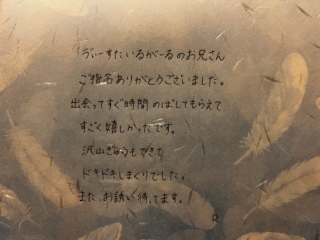 うぃーすたいるがーるのお兄さん
ご指名ありがとうございました。
出会ってすぐ時間のばしてもらえて
すごく嬉しかったです。
沢山ぎゅうもできて
ドキドキしまくりでした。
また、お誘い待ってます。